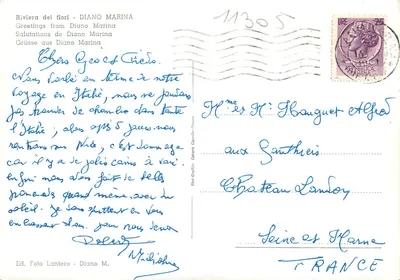 Riviera dei fiori - DIANO MARINA
Greetings from Diano Marina
Salutations de Diano Marina
Grüsse aus Diano Marina
11305
Chers Geo et
Nous voilà en terme de notre
voyage en Italie, nous ne
pas de chambre dans toute
l'Italie, alors après 5 jours nous
rentrons sur Nice, c'est dommage
car il y a de jolis coins à voir.
Enfin nous avons fait de belles
promenades quand même, avec du
soleil. Je vous en vous
embrassant bien.
Robert
Mme et Mr Hauguet Alfred
aux Gauthiers
Chateau Landon
Seine et Marne
FRANCE
Ed. Foto Lantero - Diano M.